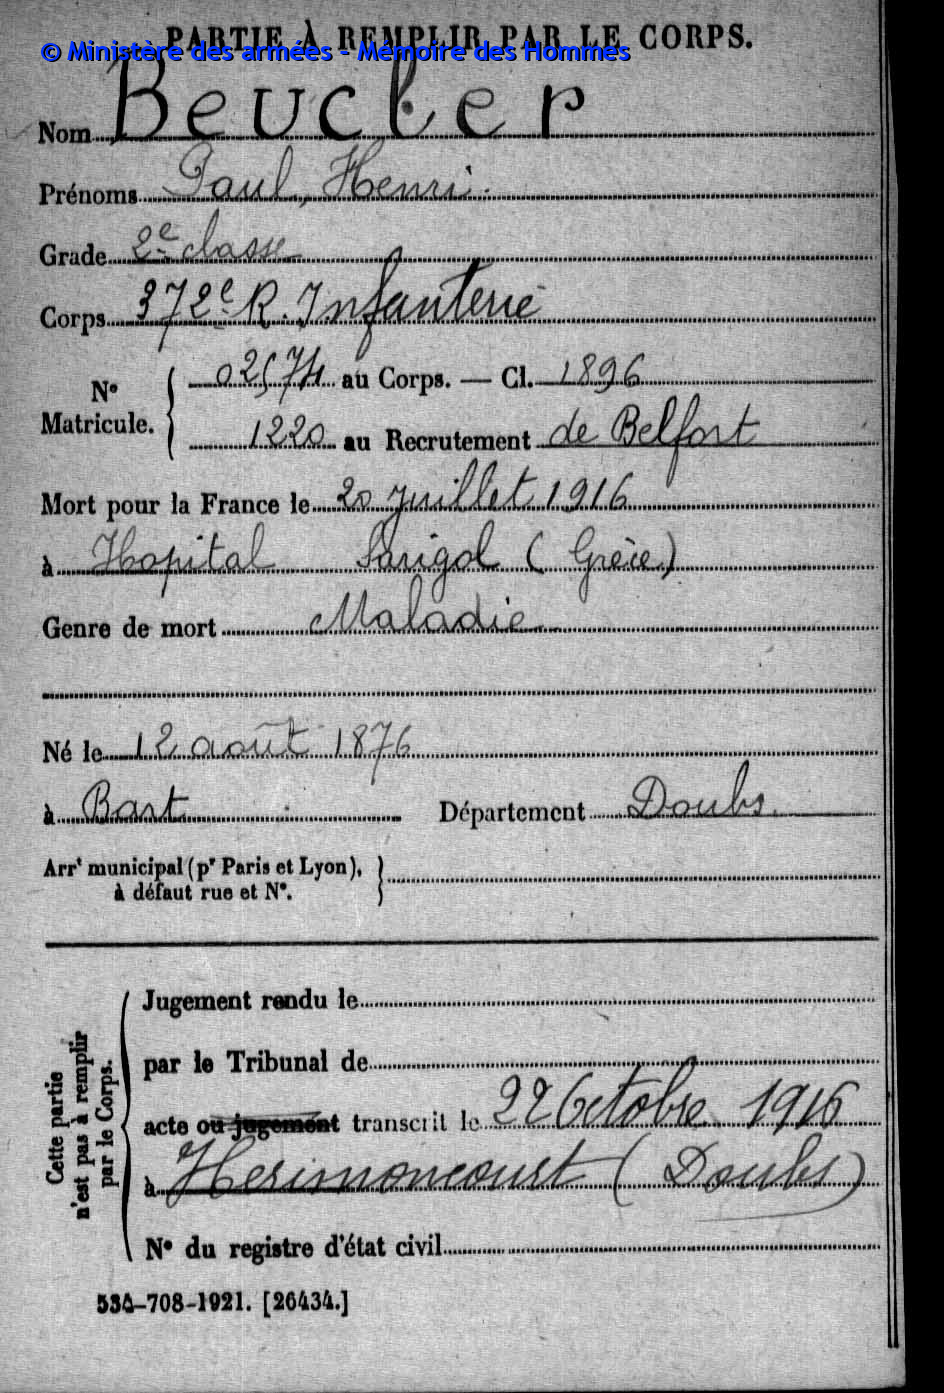 PARTIE À REMPLIR PAR LE CORPS.
© Ministère des armées - Mémoire des Hommes
Nom Beucler
Prénoms Paul, Henri.
Grade 2e classe
Corps 372e R. Infanterie
No Matricule. { 02574 au Corps. — Cl. 1896
1220 au Recrutement de Belfort
Mort pour la France le 20 juillet 1916
à Hopital Sarigol (Grèce)
Genre de mort Maladie
Né le 12 août 1876
à Bart Département Doubs.
Arrt municipal (pr Paris et Lyon), }
à défaut rue et No.
Cette partie
n'est pas à remplir
par le Corps.
Jugement rendu le
par le Tribunal de
acte ou jugement transcrit le 22 Octobre 1916
à Herimoncourt (Doubs)
No du registre d'état civil
534-708-1921. [26434.]